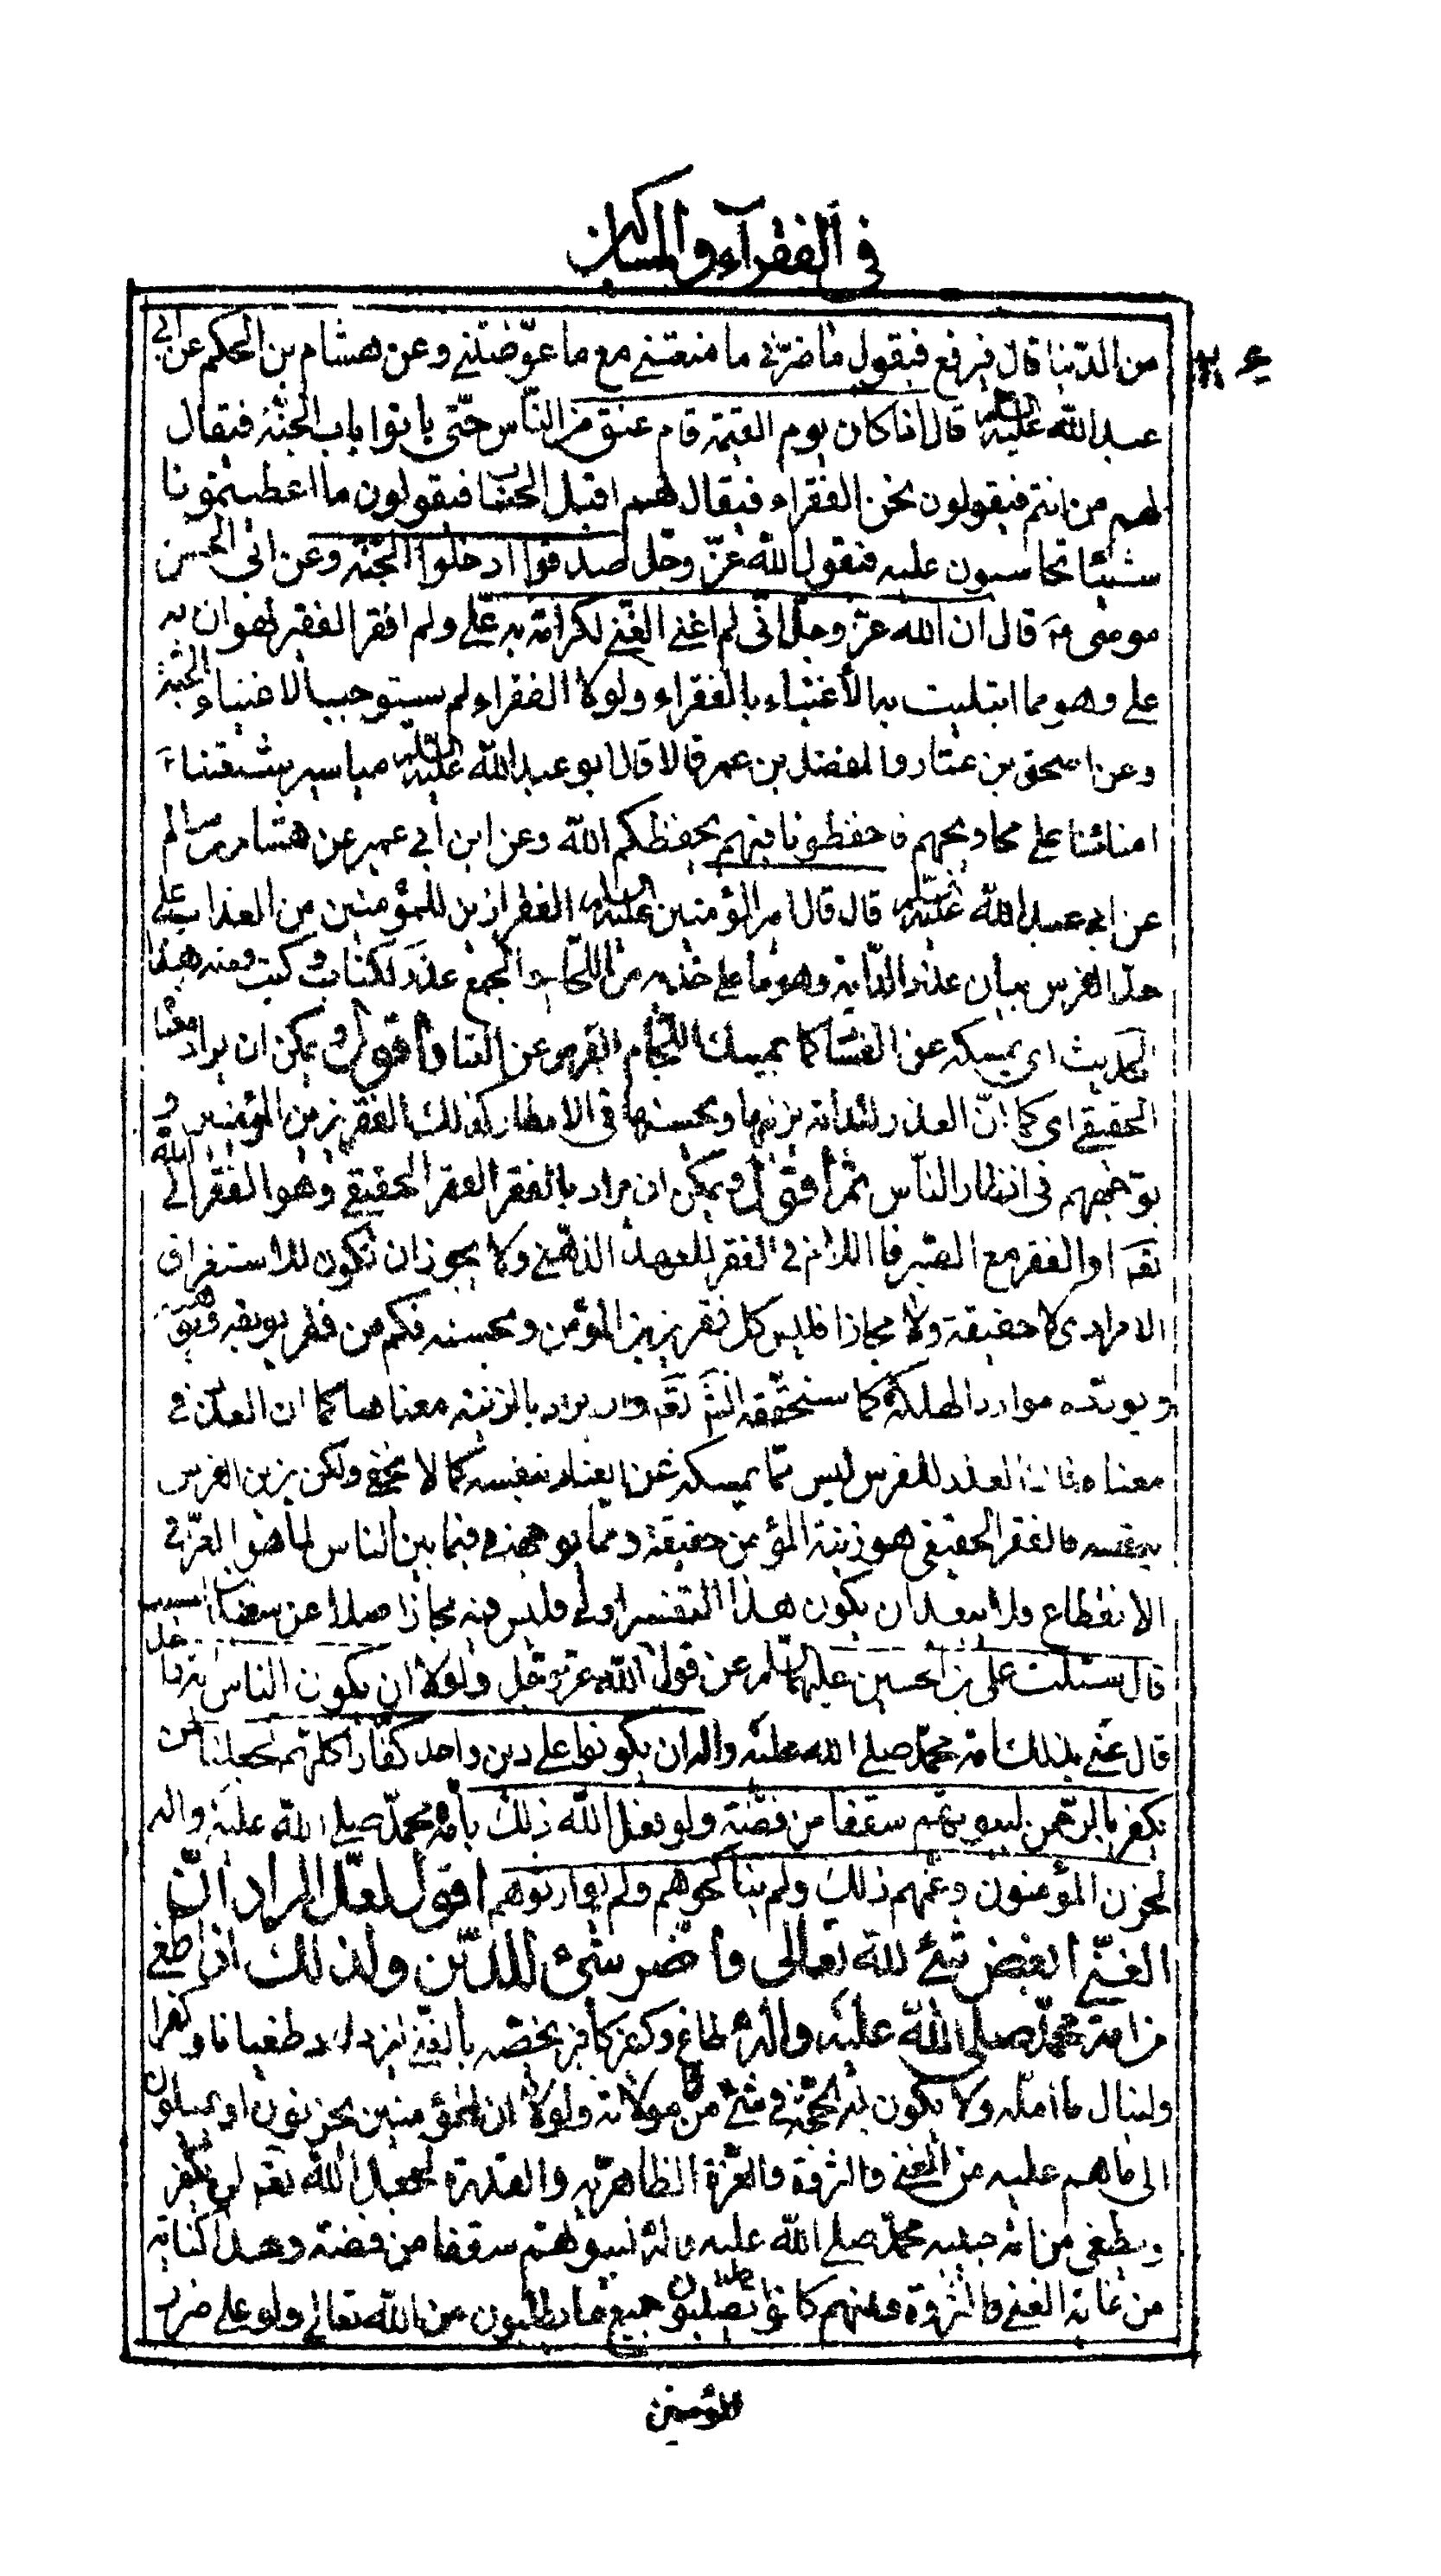 في الفقرآء والمساكين
من الدّنيا قال فيرفع فيقول ما ضرّني ما منعتني مع ما عوّضتني وعن هشام بن الحكم عن ابي
عبد الله عليه السلام قال اذا كان يوم القيمة قام عنق من النّاس حتّى يأتوا باب الجنّة فيقال
لهم من انتم فيقولون نحن الفقراء فيقال لهم اقبل الحساب فيقولون ما اعطيتمونا
شيئا تحاسبون عليه فيقول الله عزّ وجلّ صدقوا ادخلوا الجنّة وعن ابي الحسن
موسى ع قال ان الله عزّ وجلّ انّي لم اغني الغنّي لكرامة به علّي ولم افقر الفقير لهوان به
علي وهو مما ابتليت به الأغنياء بالفقراء ولولا الفقراء لم يستوجب الاغنياء الجنّة
وعن اسحق بن عمّار والمفضل بن عمر قالا قال ابو عبد الله عليه السلام مياسير شيعتنا
امنائنا على محاويجهم فاحفظونا فيهم يحفظكم الله وعن ابن ابي عمير عن هشام بن سالم
عن ابي عبد الله عليه السلام قال قال امير المؤمنين عليه السلام الفقر ازين للمؤمنين من العذار على
خد الفرس بيان عذار الدّابة وهو ما على خديه من اللّجام والجمع عذر ككتاب وكتب ومنه هذا
الحديث اى يمسكه عن الفساد كما يمسك اللّجام الفرس عن العنا واقول ويمكن ان يراد معناه
الحقيقي اى كما انّ العذار للدابة يزينها ويحسنها في الانظار كذلك الفقر يزين المؤمنين و
يوجههم في انظار النّاس ثمّ اقول ويمكن ان يراد بالفقر الفقر الحقيقي وهو الفقر الى الله
تعه او الفقر مع الصّبر فا اللام في الفقر للعهد الذّهني ولا يجوز ان تكون للاستغراق
الافرادى لا حقيقة ولا مجازا فليس كل فقر يزين المؤمن ويحسنه فكم من فقر يوبقه
ويورّده موارد الهلكة كما سنحقّقه انش تعه وان يراد بالزّينة معناها كما ان العذار في
معناه فانّ العذار للفرس ليس ممّا يمسكه عن بنفسه كما لا يخفي ولكن يزين الفرس
بنفسه فالفقر الحقيقي هو زينة المؤمن حقيقة وممّا يوجهه فيما بين الناس لما هو العزّ في
الانقطاع ولا يبعد ان يكون هذا التفسير اولى وليس فيه مجاز اصلا عن سعيد بن المسيب
قال سئلت علي بن الحسين عليهما السّلم عن قول الله عزّ وجل ولولا ان يكون الناس
قال عنّي بذلك امة محمّد صلى الله عليه واله ان يكونوا على دين واحد كفّارا كلّهم لجعلنا لمن
يكفر بالرّحمن لبيوتهم سقفا من فضّة ولو فعل الله ذلك بأمة محمّد صلى الله عليه واله
لحزن المؤمنون وغمّهم ذلك ولم يناكحوهم ولم يوارثوهم اقول لعلّ المراد انّ
الغنّي ابغض شئ لله تعالى واضر شئ للدّين ولذلك اذا طغى
من امة محمّد صلى الله عليه واله طاغ وكفر كافر يخصّه بالغنّي ليزداد طغيانا وكفرا
ولينال ما امله ولا يكون له حجّة في شئ من مولاته ولولا ان المؤمنين يحزنون او يميلون
الى ما هم عليه من الغني والثروة والعزّة الظاهريّه والقدرة لجعل الله تعه لمن يكفر
ويطغى من امّة حبيبه محمّد صلى الله عليه واله لبيوتهم سقفا من فضة وهذا كناية
من غاية الغني والثروة وانّهم كانوا جميع ما يطلبون من الله تعالى ولو على ضرر
المؤمنين